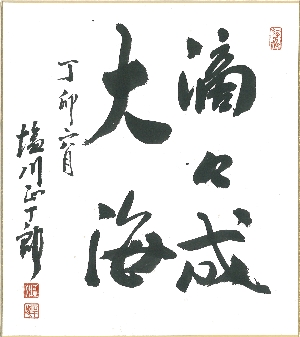 滴々成
大海
丁卯六月
塩川正十郎